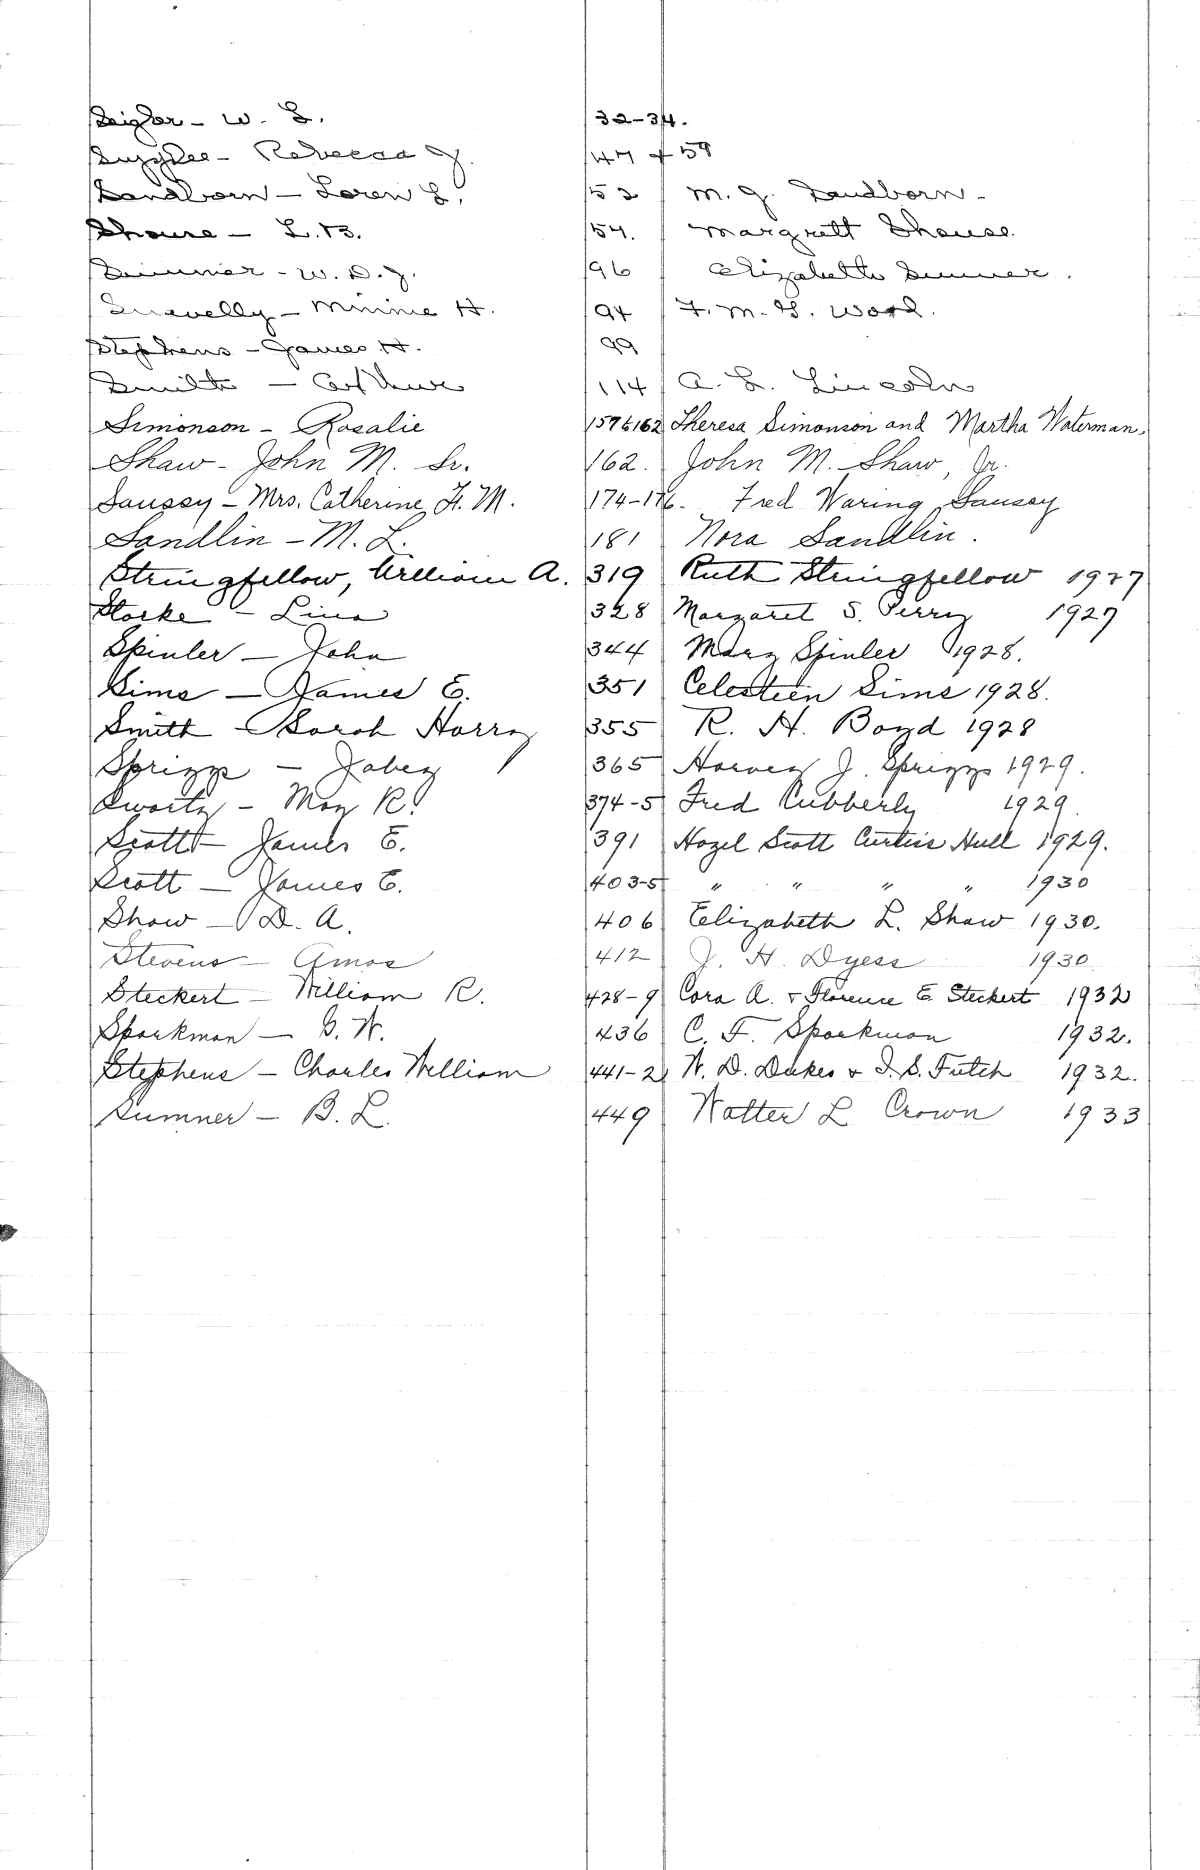 Seigler - W. L. 32-34.
Rebecca J. 47 + 58
Sandborn - Loren L. 52 M. J. Sandborn -
Shouse - L. B. 54. Margrett Shouse.
Summer - W. D. J. 96 Elizabeth Summer.
Snavelly - Minnie H. 94 F. M. G. Wood.
Stephens - James H. 99
Smith - Arthur 114 A. L. Lincoln
Simonson - Rosalie 157&162 Theresa Simonson and Martha Waterman.
Shaw - John M. Sr. 162. John M. Shaw, Jr.
Saussy - Mrs. Catherine F. M. 174-176. Fred Waring Saussy
Sandlin - M. L. 181 Nora Sandlin.
Stringfellow, William A. 319 Ruth Stringfellow 1927
Storke - Lina 328 Margaret S. Perry 1927
Spinler - John 344 Mary Spinler 1928.
Sims - James E. 351 Celestien Sims 1928.
Smith - Sarah Harry 355 R. H. Boyd 1928
Spriggs - Jabez 365 Harvey J. Spriggs 1929.
Swartz - May R. 374-5 Fred Cubberly 1929.
Scott - James E. 391 Hazel Scott Curtiss Hull 1929.
Scott - James E. 403-5 " " " " 1930
Shaw - D. A. 406 Elizabeth L. Shaw 1930.
Stevens - Amos 412 J. H. Dyess 1930
Steckert - William R. 428-9 Cora A. & Florence E. Steckert 1932
Sparkman - G. W. 436 C. F. Sparkman 1932.
Stephens - Charles William 441-2 W. D. Dukes & I. S. Futch 1932.
Sumner - B. L. 449 Walter L Crown 1933